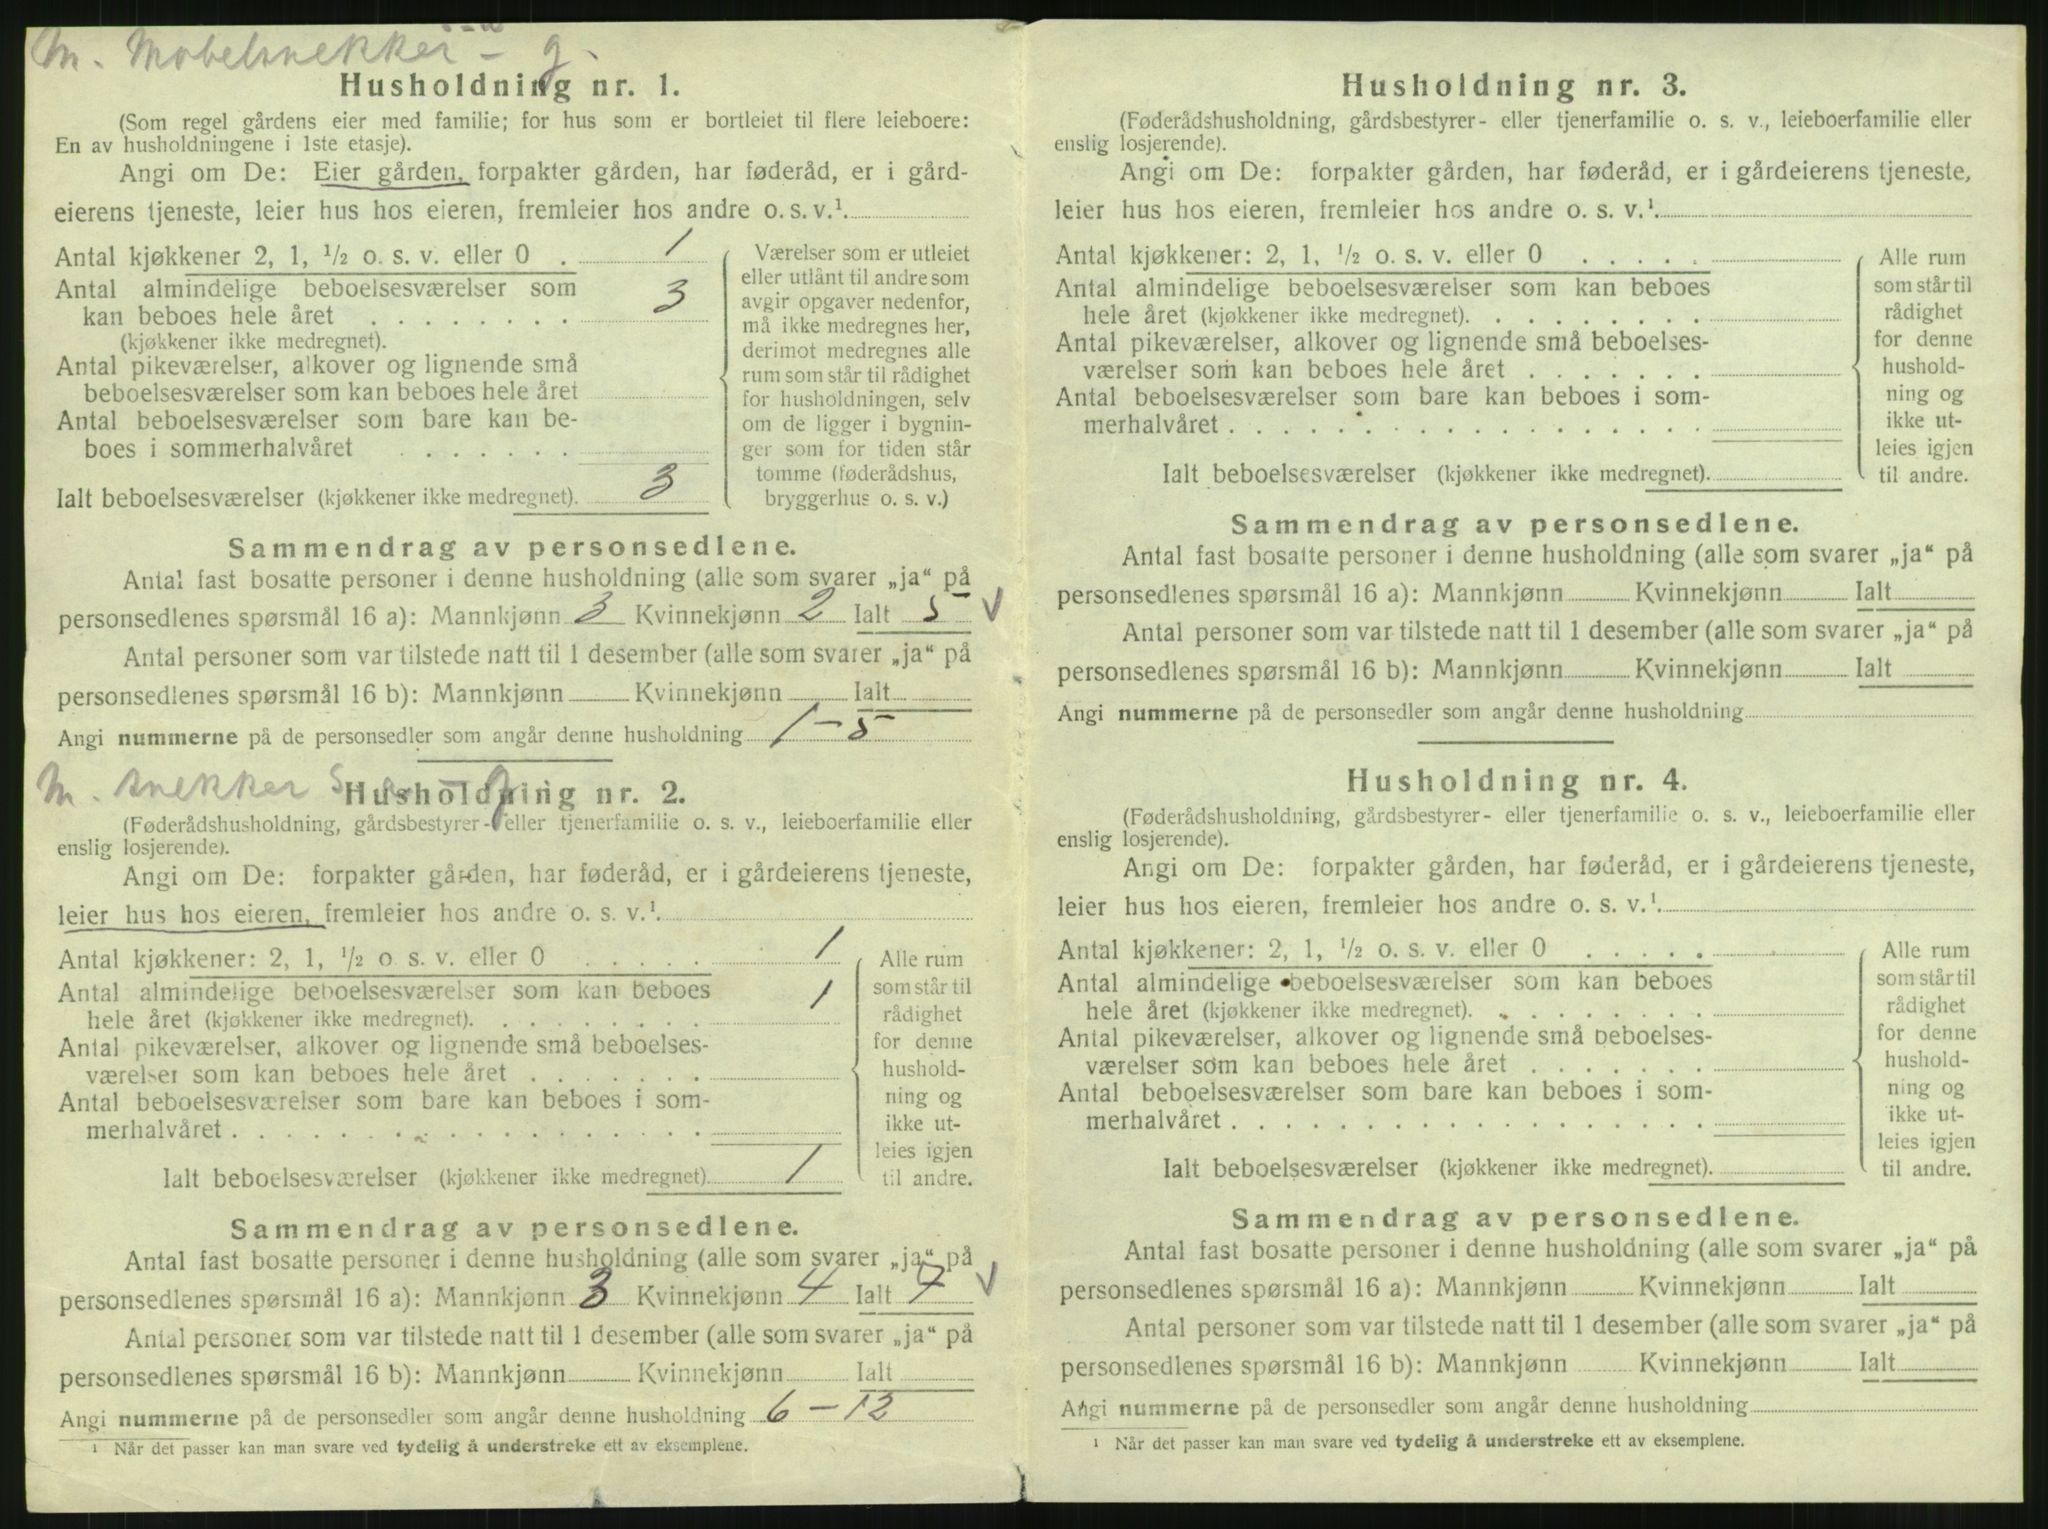 M. Møbelsnekker - g.
Husholdning nr. 1.
(Som regel gårdens eier med familie; for hus som er bortleiet til flere leieboere:
En av husholdningene i 1ste etasje).
Angi om De: Eier gården, forpakter gården, har føderåd, er i gård-
eierens tjeneste, leier hus hos eieren, fremleier hos andre o. s. v.¹
Antal kjøkkener 2, 1, ½ o. s. v. eller 0 . 1
Antal almindelige beboelsesværelser som
kan beboes hele året . . . . . . . . 3
(kjøkkener ikke medregnet).
Antal pikeværelser, alkover og lignende små
beboelsesværelser som kan beboes hele året
Antal beboelsesværelser som bare kan be-
boes i sommerhalvåret . . . . . .
Ialt beboelsesværelser (kjøkkener ikke medregnet). 3
Værelser som er utleiet
eller utlånt til andre som
avgir opgaver nedenfor,
må ikke medregnes her,
derimot medregnes alle
rum som står til rådighet
for husholdningen, selv
om de ligger i bygnin-
ger som for tiden står
tomme (føderådshus,
bryggerhus o. s. v.)
Sammendrag av personsedlene.
Antal fast bosatte personer i denne husholdning (alle som svarer „ja“ på
personsedlenes spørsmål 16 a): Mannkjønn 3 Kvinnekjønn 2 Ialt 5 √
Antal personer som var tilstede natt til 1 desember (alle som svarer „ja“ på
personsedlenes spørsmål 16 b): Mannkjønn Kvinnekjønn Ialt
Angi nummerne på de personsedler som angår denne husholdning 1-5
M. snekker g
Husholdning nr. 2.
(Føderådshusholdning, gårdsbestyrer- eller tjenerfamilie o. s. v., leieboerfamilie eller
enslig losjerende).
Angi om De: forpakter gården, har føderåd, er i gårdeierens tjeneste,
leier hus hos eieren, fremleier hos andre o. s. v.¹
Antal kjøkkener: 2, 1, ½ o s. v. eller 0 . . . . . 1
Antal almindelige beboelsesværelser som kan beboes
hele året (kjøkkener ikke medregnet). . . . . . . . . 1
Antal pikeværelser, alkover og lignende små beboelses-
værelser som kan beboes hele året . . . . . . .
Antal beboelsesværelser som bare kan beboes i som-
merhalvåret . . . . . . . . . . . . . . . . . .
Ialt beboelsesværelser (kjøkkener ikke medregnet) 1
Alle rum
som står til
rådighet
for denne
hushold-
ning og
ikke ut-
leies igjen
til andre.
Sammendrag av personsedlene.
Antal fast bosatte personer i denne husholdning (alle som svarer „ja“ på
personsedlenes spørsmål 16 a): Mannkjønn 3 Kvinnekjønn 4 Ialt 7 √
Antal personer som var tilstede natt til 1 desember (alle som svarer „ja“ på
personsedlenes spørsmål 16 b): Mannkjønn Kvinnekjønn Ialt
Angi nummerne på de personsedler som angår denne husholdning 6-12
¹ Når det passer kan man svare ved tydelig å understreke ett av eksemplene.
Husholdning nr. 3.
(Føderådshusholdning, gårdsbestyrer- eller tjenerfamilie o. s. v., leieboerfamilie eller
enslig losjerende).
Angi om De: forpakter gården, har føderåd, er i gårdeierens tjeneste,
leier hus hos eieren, fremleier hos andre o. s. v.¹
Antal kjøkkener: 2, 1, ½ o. s. v. eller 0 . . . . .
Antal almindelige beboelsesværelser som kan beboes
hele året (kjøkkener ikke medregnet). . . . . . . . .
Antal pikeværelser, alkover og lignende små beboelses-
værelser som kan beboes hele året . . . . . . .
Antal beboelsesværelser som bare kan beboes i som-
merhalvåret . . . . . . . . . . . . . . . . . .
Ialt beboelsesværelser (kjøkkener ikke medregnet).
Alle rum
som står til
rådighet
for denne
hushold-
ning og
ikke ut-
leies igjen
til andre.
Sammendrag av personsedlene.
Antal fast bosatte personer i denne husholdning (alle som svarer „ja“ på
personsedlenes spørsmål 16 a): Mannkjønn Kvinnekjønn Ialt
Antal personer som var tilstede natt til 1 desember (alle som svarer „ja“ på
personsedlenes spørsmål 16 b): Mannkjønn Kvinnekjønn Ialt
Angi nummerne på de personsedler som angår denne husholdning
Husholdning nr. 4.
(Føderådshusholdning, gårdsbestyrer- eller tjenerfamilie o. s. v., leieboerfamilie eller
enslig losjerende).
Angi om De: forpakter gården, har føderåd, er i gårdeierens tjeneste,
leier hus hos eieren, fremleier hos andre o. s. v.¹
Antal kjøkkener: 2, 1, ½ o. s. v. eller 0 . . . . .
Antal almindelige beboelsesværelser som kan beboes
hele året (kjøkkener ikke medregnet). . . . . . . . .
Antal pikeværelser, alkover og lignende små beboelses-
værelser som kan beboes hele året . . . . . . .
Antal beboelsesværelser som bare kan beboes i som-
merhalvåret . . . . . . . . . . . . . . . . . .
Ialt beboelsesværelser (kjøkkener ikke medregnet).
Alle rum
som står til
rådighet
for denne
hushold-
ning og
ikke ut-
leies igjen
til andre.
Sammendrag av personsedlene.
Antal fast bosatte personer i denne husholdning (alle som svarer „ja“ på
personsedlenes spørsmål 16 a): Mannkjønn Kvinnekjønn Ialt
Antal personer som var tilstede natt til 1 desember (alle som svarer „ja“ på
personsedlenes spørsmål 16 b): Mannkjønn Kvinnekjønn Ialt
Angi nummerne på de personsedler som angår denne husholdning
¹ Når det passer kan man svare ved tydelig å understreke ett av eksemplene.